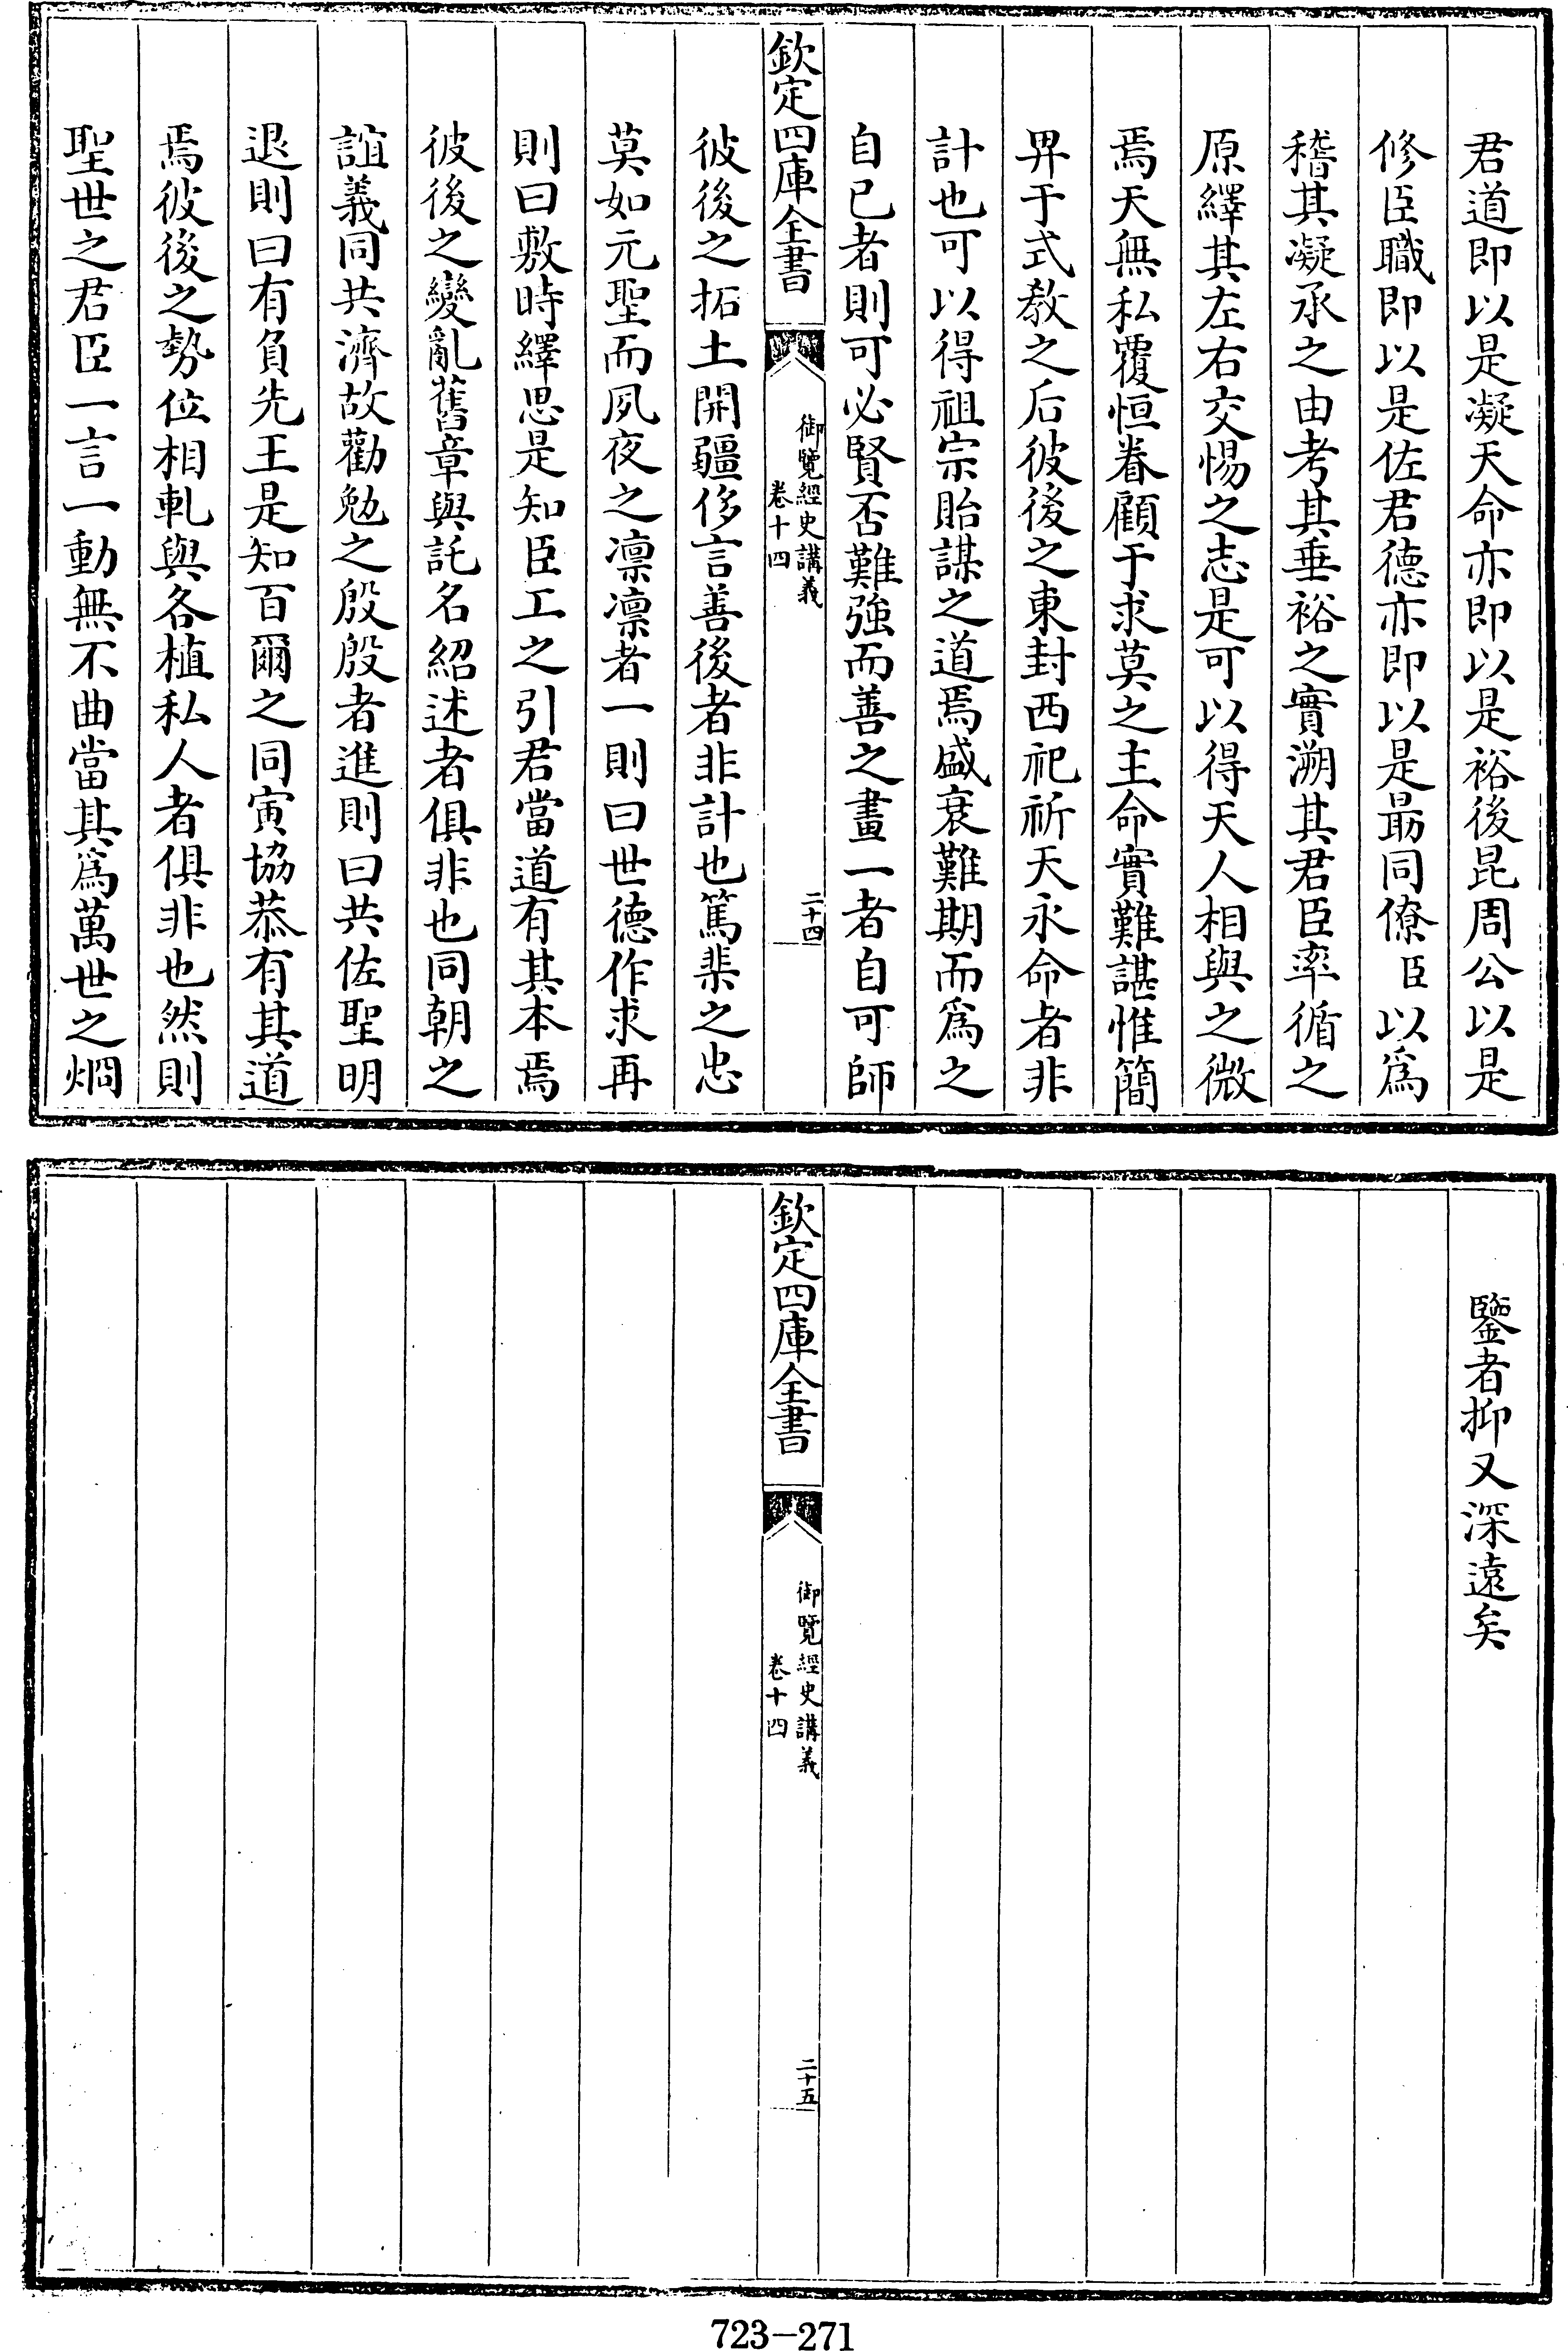 君道即以是凝天命亦即以是裕後昆周公以是
修臣職即以是佐君德亦即以是最同僚臣以為
稽其凝承之由考其垂裕之實溯其君臣率循之
原繹其左右交惕之志是可以得天人相與之微
焉天無私覆恒眷顧于求莫之主命實難諶惟簡
畀于式教之后彼後之東封西祀祈天永命者非
計也可以得祖宗貽謀之道焉盛衰難期而為之
自已者則可必賢否難強而善之畫一者自可師
欽定四庫全書
御覽經史講義
卷十四
二十四
彼後之拓土開疆侈言善後者非計也篤棐之忠
莫如元聖而夙夜之凛凛者一則曰世德作求再
則曰敷時繹思是知臣工之引君當道有其本焉
彼後之變亂舊章與託名紹述者俱非也同朝之
誼義同共濟故勸勉之殷殷者進則曰共佐聖明
退則曰有負先王是知百爾之同寅協恭有其道
焉彼後之勢位相軋與各植私人者俱非也然則
聖世之君臣一言一動無不曲當其為萬世之烱
鑒者抑又深遠矣
欽定四庫全書
御覽經史講義
卷十四
二十五
723-271